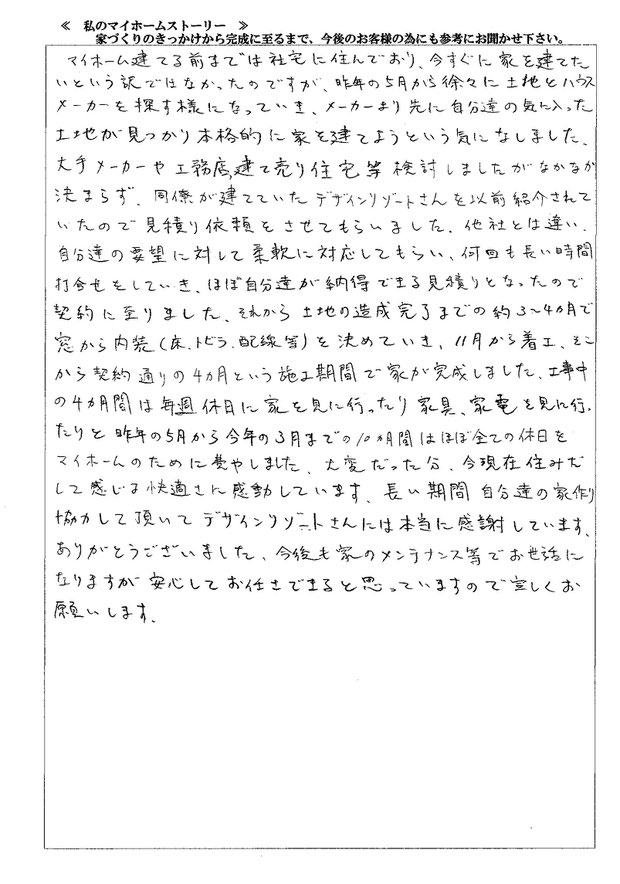 ≪　私のマイホームストーリー　≫
家づくりのきっかけから完成に至るまで、今後のお客様の為にも参考にお聞かせ下さい。
マイホーム建てる前までは社宅に住んでおり、今すぐに家を建てた
いという訳ではなかったのですが、昨年の5月から徐々に土地とハウス
メーカーを探す様になっていき、メーカーより先に自分達の気に入った
土地が見つかり本格的に家を建てようという気になしました。
大手メーカーや工務店、建て売り住宅等検討しましたがなかなか
決まらず、同僚が建てていたデザインリゾートさんを以前紹介されて
いたので見積り依頼をさせてもらいました。他社とは違い、
自分達の要望に対して柔軟に対応してもらい、何回も長い時間
打合せをしていき、ほぼ自分達が納得できる見積りとなったので
契約に至りました。それから土地の造成完了までの約3~4カ月で
窓から内装(床、トビラ、配線等)を決めていき、11月から着工、そこ
から契約通りの4カ月という施工期間で家が完成しました。工事中
の4カ月間は毎週休日に家を見に行ったり家具、家電を見に行っ
たりと昨年の5月から今年の3月までの10カ月間はほぼ全ての休日を
マイホームのために費やしました。大変だった分、今現在住みだ
して感じる快適さに感動しています。長い期間自分達の家作り
協力して頂いてデザインリゾートさんには本当に感謝しています。
ありがとうございました。今後も家のメンテナンス等でお世話に
なりますが安心してお任せできると思っていますので宜しくお
願いします。